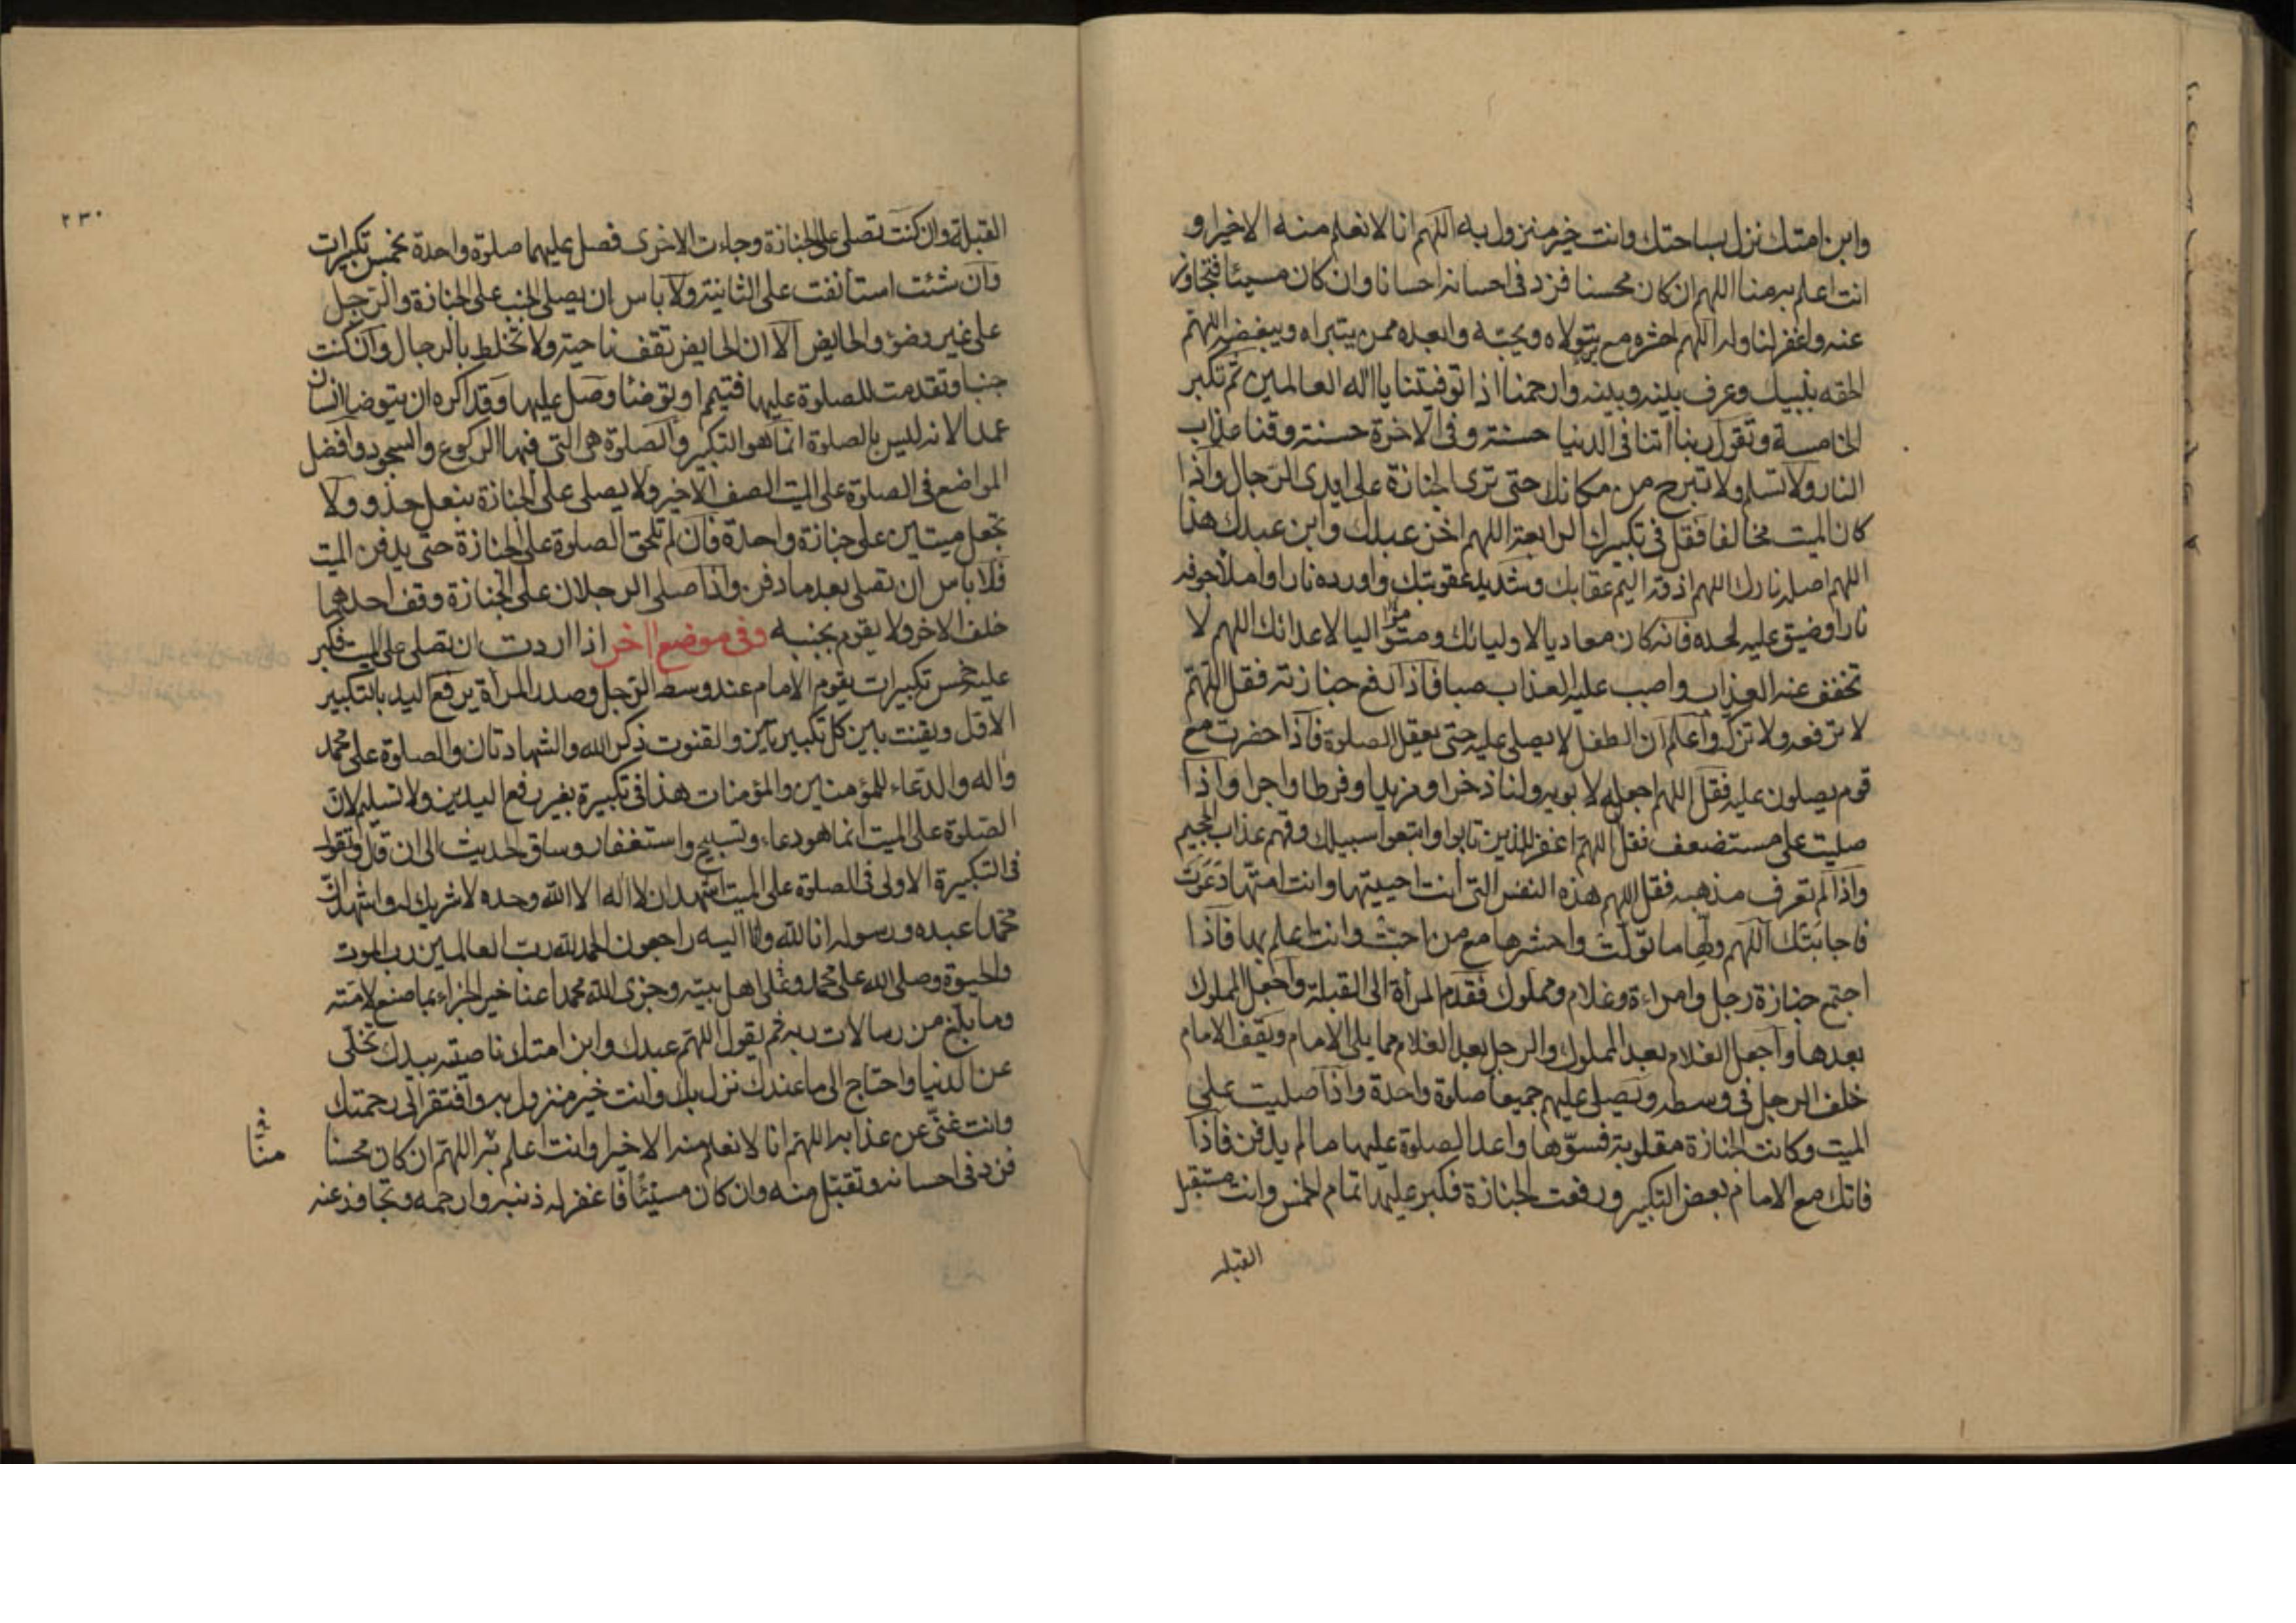 وابن امتك نزل بساحتك وانت خير منزول به اللهم انا لا نعلم منه الا خيرا و
انت اعلم به منا اللهم ان كان محسنا فزد في احسانه احسانا وان كان مسيئا فتجاوز
عنه واغفر لنا وله اللهم احشره مع من يتولاه ويحبه وابعده ممن يتبراه ويبغضه اللهم
الحقه بنبيك وعرف بينه وبينه وارحمنا اذا توفيتنا يا اله العالمين ثم تكبر
الخامسة وتقول ربنا اتنا في الدنيا حسنة وفي الاخرة حسنة وقنا عذاب
النار ولا تسلم ولا تبرح من مكانك حتى ترى الجنازة على ايدى الرجال واذا
كان الميت مخالفا فقل في تكبيرك الرابعة اللهم اخز عبدك وابن عبدك هذا
اللهم اصله نارك اللهم اذقه اليم عقابك وشديد عقوبتك واورده نارا واملأ جوفه
نارا وضيق عليه لحده فانه كان معاديا لاوليائك ومتواليا لاعدائك اللهم لا
تخفف عنه العذاب واصبب عليه العذاب صبا فاذا رفع جنازته فقل اللهم
لا ترفعه ولا تزكه واعلم ان الطفل لا يصلى عليه حتى يعقل الصلوة فاذا حضرت مع
قوم يصلون عليه فقل اللهم اجعله لابويه ولنا ذخرا ومزيدا وفرطا واجرا واذا
صليت على مستضعف فقل اللهم اغفر للذين تابوا واتبعوا سبيلك وقهم عذاب الجحيم
واذا لم تعرف مذهبه فقل اللهم هذه النفس التى انت احييتها وانت امتها دعوت
فاجابتك اللهم ولها ما تولت واحشرها مع من احبت وانت اعلم بها فاذا
اجتمع جنازة رجل وامراءة وغلام ومملوك فقدم المرأة الى القبلة واجعل المملوك
بعدها واجعل الغلام بعد المملوك والرجل بعد الغلام مما يلى الامام ويقف الامام
خلف الرجل في وسطه ويصلى عليهم جميعا صلوة واحدة واذا صليت على
الميت وكانت الجنازة مقلوبة فسوّها واعد الصلوة عليها ما لم يدفن فاذا
فاتك مع الامام بعض التكبير ورفعت الجنازة فكبر عليها تمام الخمس وانت مستقبل
القبلة
٢٣٠
القبلة وان كنت تصلى على الجنازة وجاءت الاخرى فصل عليهما صلوة واحدة بخمس تكبيرات
وان شئت استأنفت على الثانية ولا باس ان يصلى الجنب على الجنازة والرجل
على غير وضؤ والحايض الا ان الحايض تقف ناحية ولا تختلط بالرجال وان كنت
جنبا وتقدمت للصلوة عليها فتيمم او توضأ وصل عليها وقد اكره ان يتوضأ انسان
عمدا لانه ليس بالصلوة انما هو التكبير والصلوة هى التى فيها الركوع والسجود وافضل
المواضع في الصلوة على الميت الصف الاخير ولا يصلى على الجنازة بنعل حذو ولا
تجعل ميتين على جنازة واحدة فان لم تلحق الصلوة على الجنازة حتى يدفن الميت
فلا باس ان تصلى بعد ما دفن واذا صلى الرجلان على الجنازة وقف احدهما
خلف الاخر ولا يقوم بجنبه وفي موضع اخر اذا اردت ان تصلى على الميت فكبر
عليه خمس تكبيرات يقوم الامام عند وسط الرجل وصدر المرأة يرفع اليد بالتكبير
الاول ويقنت بين كل تكبيرتين والقنوت ذكر الله والشهادتان والصلوة على محمد
واله والدعاء للمؤمنين والمؤمنات هذا في تكبيرة بغير رفع اليدين ولا تسليم لان
الصلوة على الميت انما هو دعاء وتسبيح واستغفار وساق الحديث الى ان قال وتقول
في التكبيرة الاولى في الصلوة على الميت اشهد ان لا اله الا الله وحده لا شريك له واشهد ان
محمدا عبده ورسوله انا لله وانا اليه راجعون الحمد لله رب العالمين رب الموت
والحيوة وصلى الله على محمد وعلى اهل بيته وجزى الله محمدا عنا خير الجزاء بما صنع لامته
وما بلغ من رسالات ربه ثم يقول اللهم عبدك وابن امتك ناصيته بيدك تخلى
عن الدنيا واحتاج الى ما عندك نزل بك وانت خير منزول به وافتقر الى رحمتك
وانت غنى عن عذابه اللهم انا لا نعلم منه الا خيرا وانت اعلم به اللهم ان كان محسنا
منّا
فزد في احسانه وتقبل منه وان كان مسيئا فاغفر له ذنبه وارحمه وتجاوز عنه